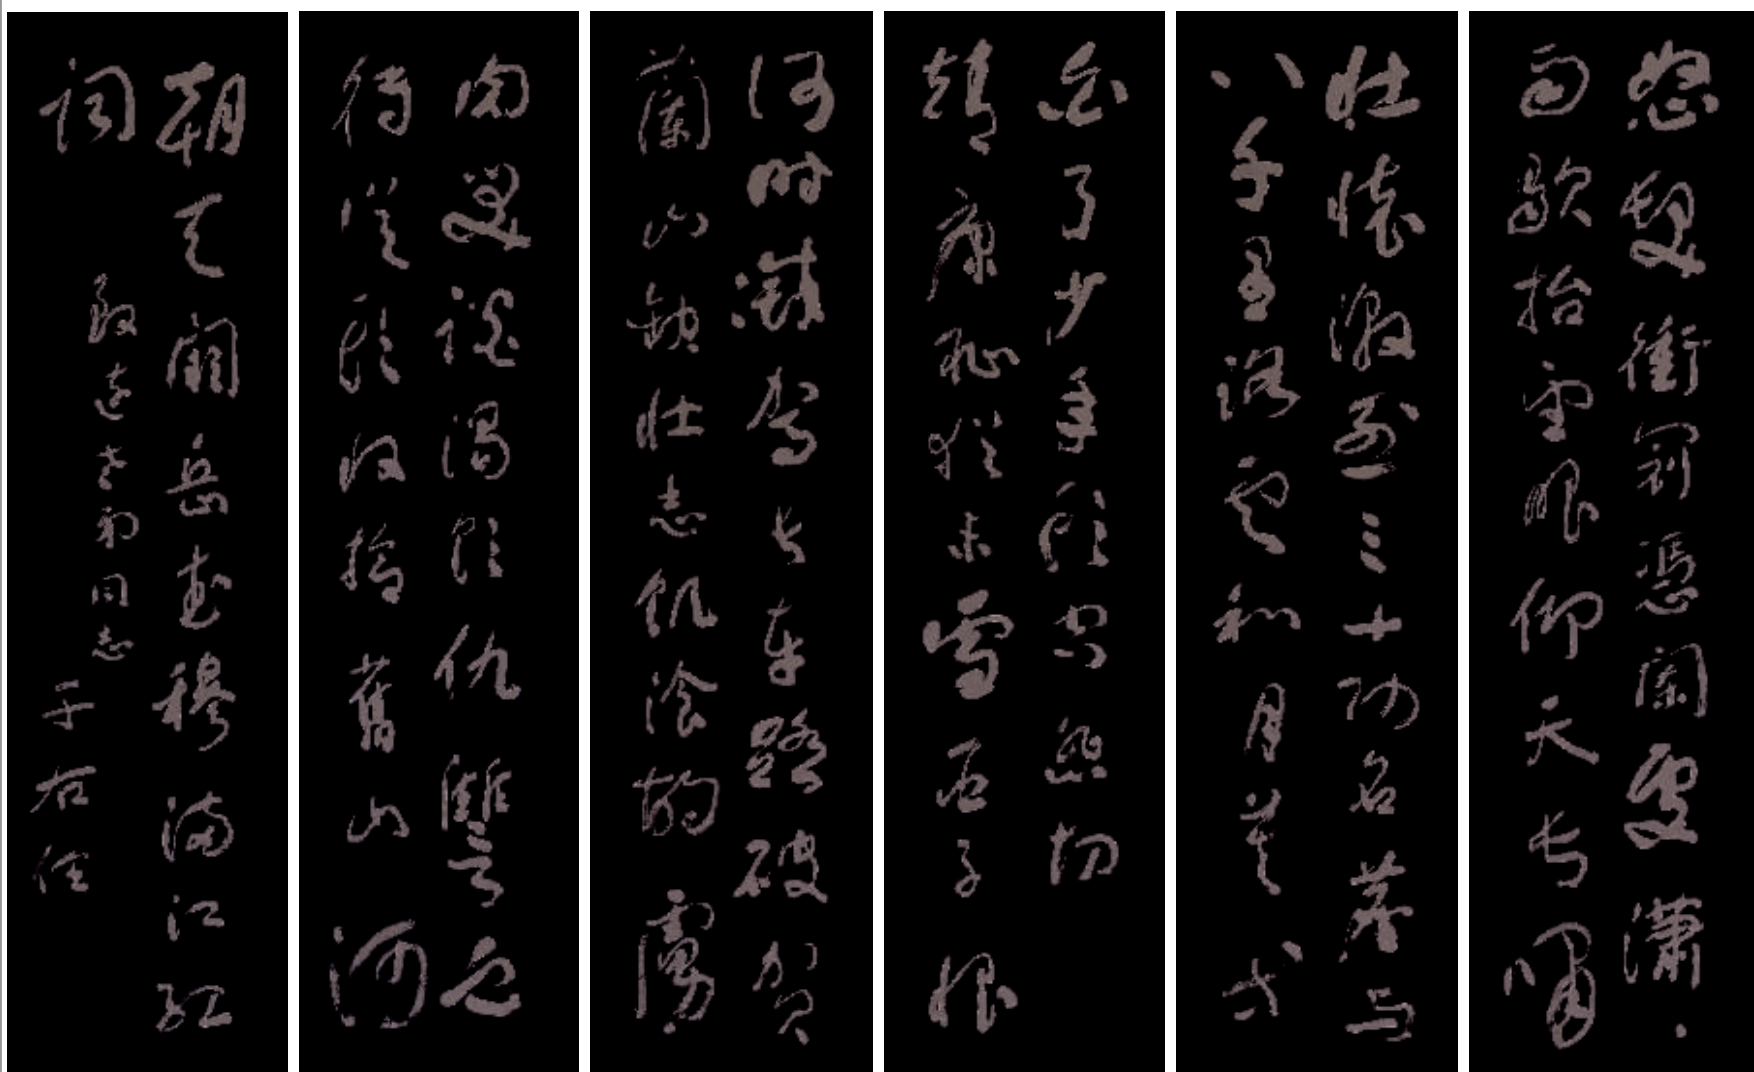 怒髮衝冠憑闌處瀟、
雨歇抬望眼仰天長嘯
壯懷激烈三十功名塵與
八千里路雲和月莫等
白了少年頭空悲切
靖康恥猶未雪臣子恨
何時滅駕長車踏破賀
蘭山缺壯志飢餐胡虜
肉笑談渴飲仇讐血
待從頭收拾舊山河
朝天闕岳武穆滿江紅
詞
致遠 同志
于右任